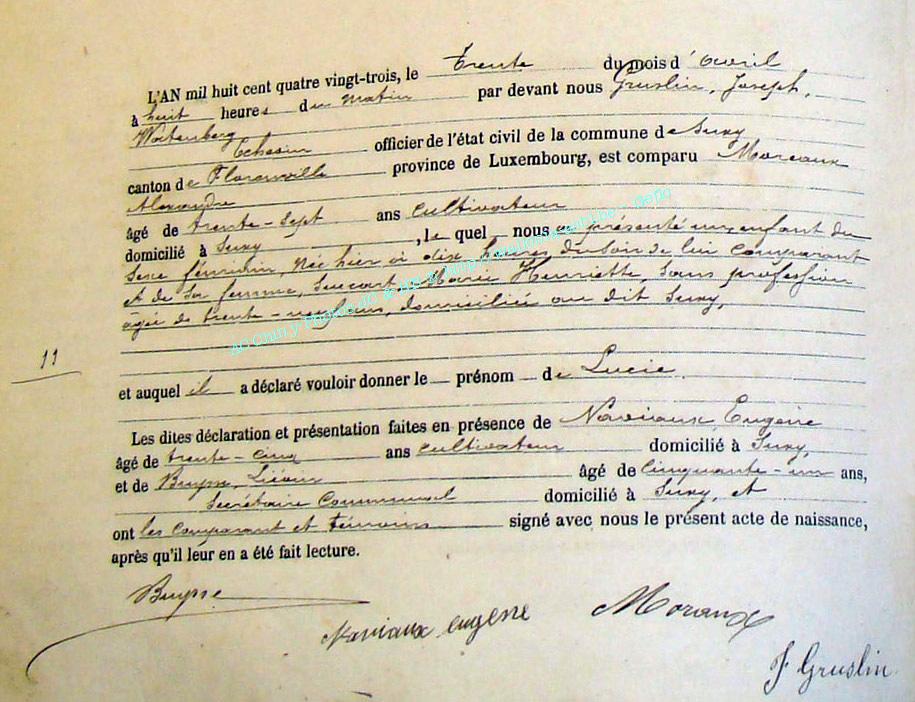 L'AN mil huit cent quatre vingt-trois, le trente du mois d'avril
à huit heures du matin par devant nous Gruslin, Joseph,
Echevin officier de l'état civil de la commune de Suxy
canton de Florenville province de Luxembourg, est comparu Moreaux
Alexandre
âgé de trente-sept ans cultivateur
domicilié à Suxy, le quel nous a présenté un enfant du
sexe féminin, née hier à dix heures du soir de lui comparant
et de sa femme, Marie Henriette, sans profession
âgée de trente-neuf ans, domiciliée au dit Suxy,
11
et auquel il a déclaré vouloir donner le prénom de Lucie.
Les dites déclaration et présentation faites en présence de Naviaux, Eugène
âgé de trente-cinq ans cultivateur domicilié à Suxy,
et de Buysse, âgé de cinquante-un ans,
Secrétaire Communal domicilié à Suxy, et
ont les comparant et témoins signé avec nous le présent acte de naissance,
après qu'il leur en a été fait lecture.
Buysse
Naviaux eugene
Moraux
J Gruslin